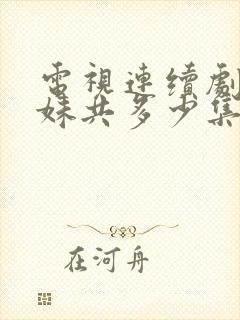 電視連續劇
妹共多少集
在河舟